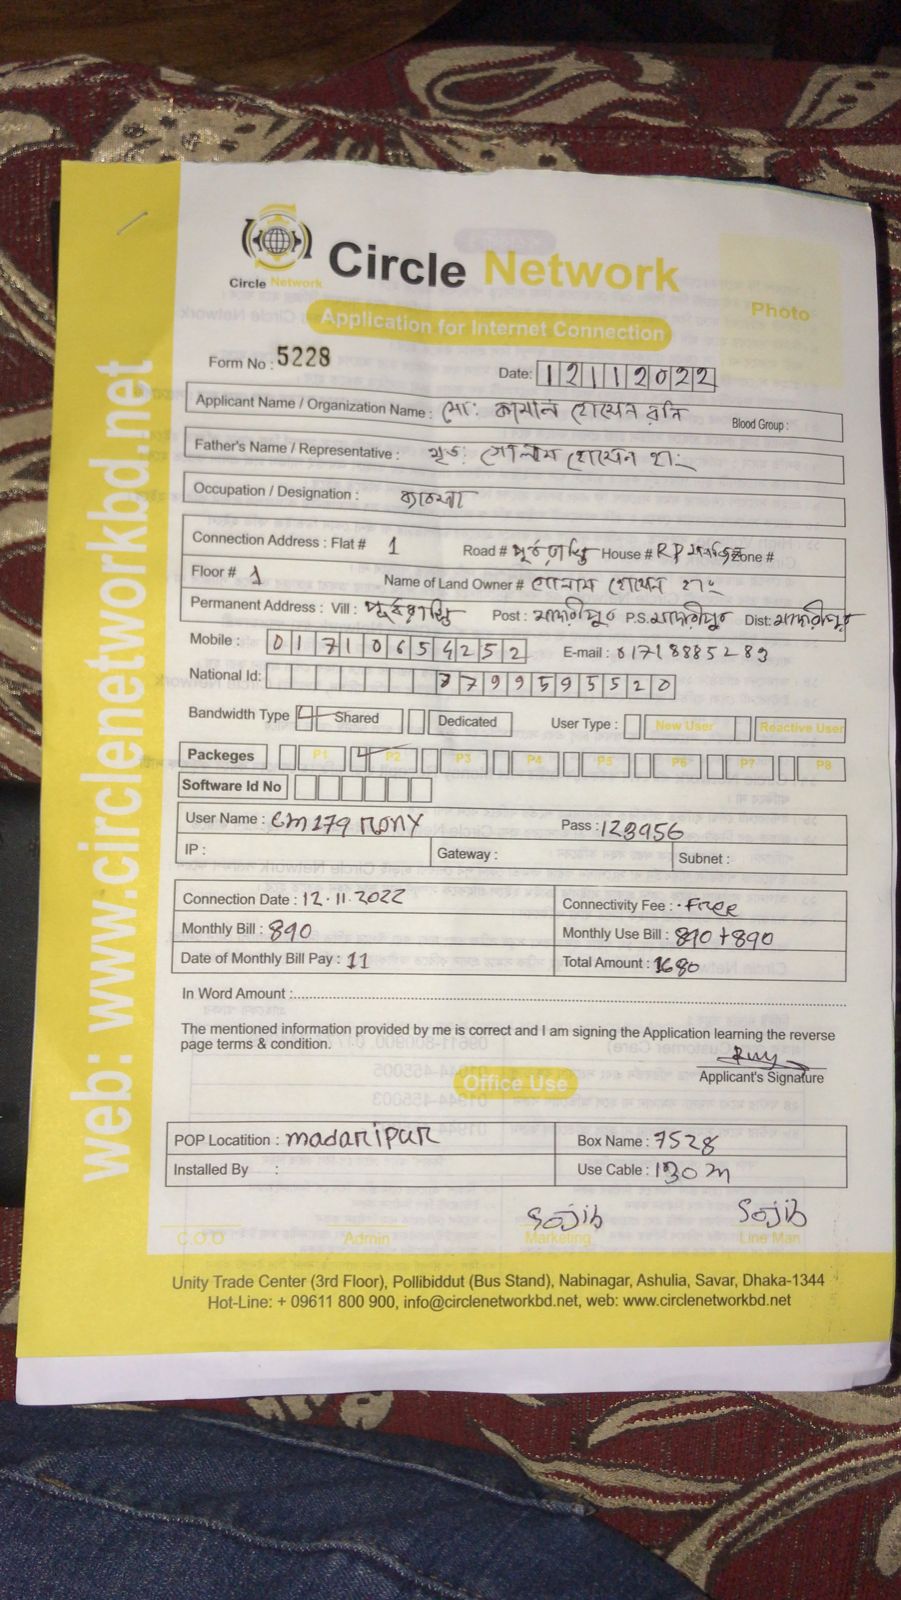 Circle Network
Circle Network
Photo
Application for Internet Connection
Form No : 5228
Date: 12112022
Applicant Name / Organization Name : মো: কামাল হোসেন রনি Blood Group :
Father's Name / Representative : মৃত: গোলাম হোসেন হা:
Occupation / Designation : ব্যবসা
Connection Address : Flat # 1 Road # House # Zone #
Floor # 1 Name of Land Owner # গোলাম হোসেন হা:
Permanent Address : Vill : Post : মাদারীপুর P.S. মাদারীপুর Dist: মাদারীপুর
Mobile : 01710654252 E-mail : 01718885289
National Id: 7799595520
Bandwidth Type Shared Dedicated User Type : New User Reactive User
Packeges P1 P2 P3 P4 P5 P6 P7 P8
Software Id No
User Name : CM179 RONY Pass : 123956
IP : Gateway : Subnet :
Connection Date : 12.11.2022 Connectivity Fee : Free
Monthly Bill : 890 Monthly Use Bill : 890+890
Date of Monthly Bill Pay : 11 Total Amount : 1680
In Word Amount :
The mentioned information provided by me is correct and I am signing the Application learning the reverse
page terms & condition.
Applicant's Signature
Office Use
POP Locatition : madaripur Box Name : 7528
Installed By : Use Cable : 130 m
Sojib Sojib
C.O.O Admin Marketing Line Man
Unity Trade Center (3rd Floor), Pollibiddut (Bus Stand), Nabinagar, Ashulia, Savar, Dhaka-1344
Hot-Line: + 09611 800 900, info@circlenetworkbd.net, web: www.circlenetworkbd.net
web: www.circlenetworkbd.net